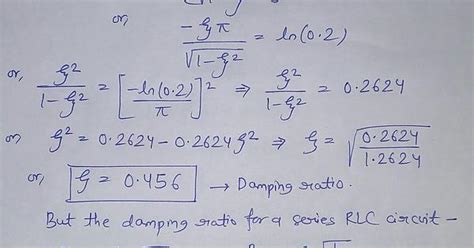 or, -ξπ/√(1-ξ²) = ln(0.2)
or, ξ²/(1-ξ²) = [-ln(0.2)/π]² ⇒ ξ²/(1-ξ²) = 0.2624
or ξ² = 0.2624 - 0.2624 ξ² ⇒ ξ = √(0.2624/1.2624)
or, ξ = 0.456 → Damping ratio.
But the damping ratio for a series RLC circuit -